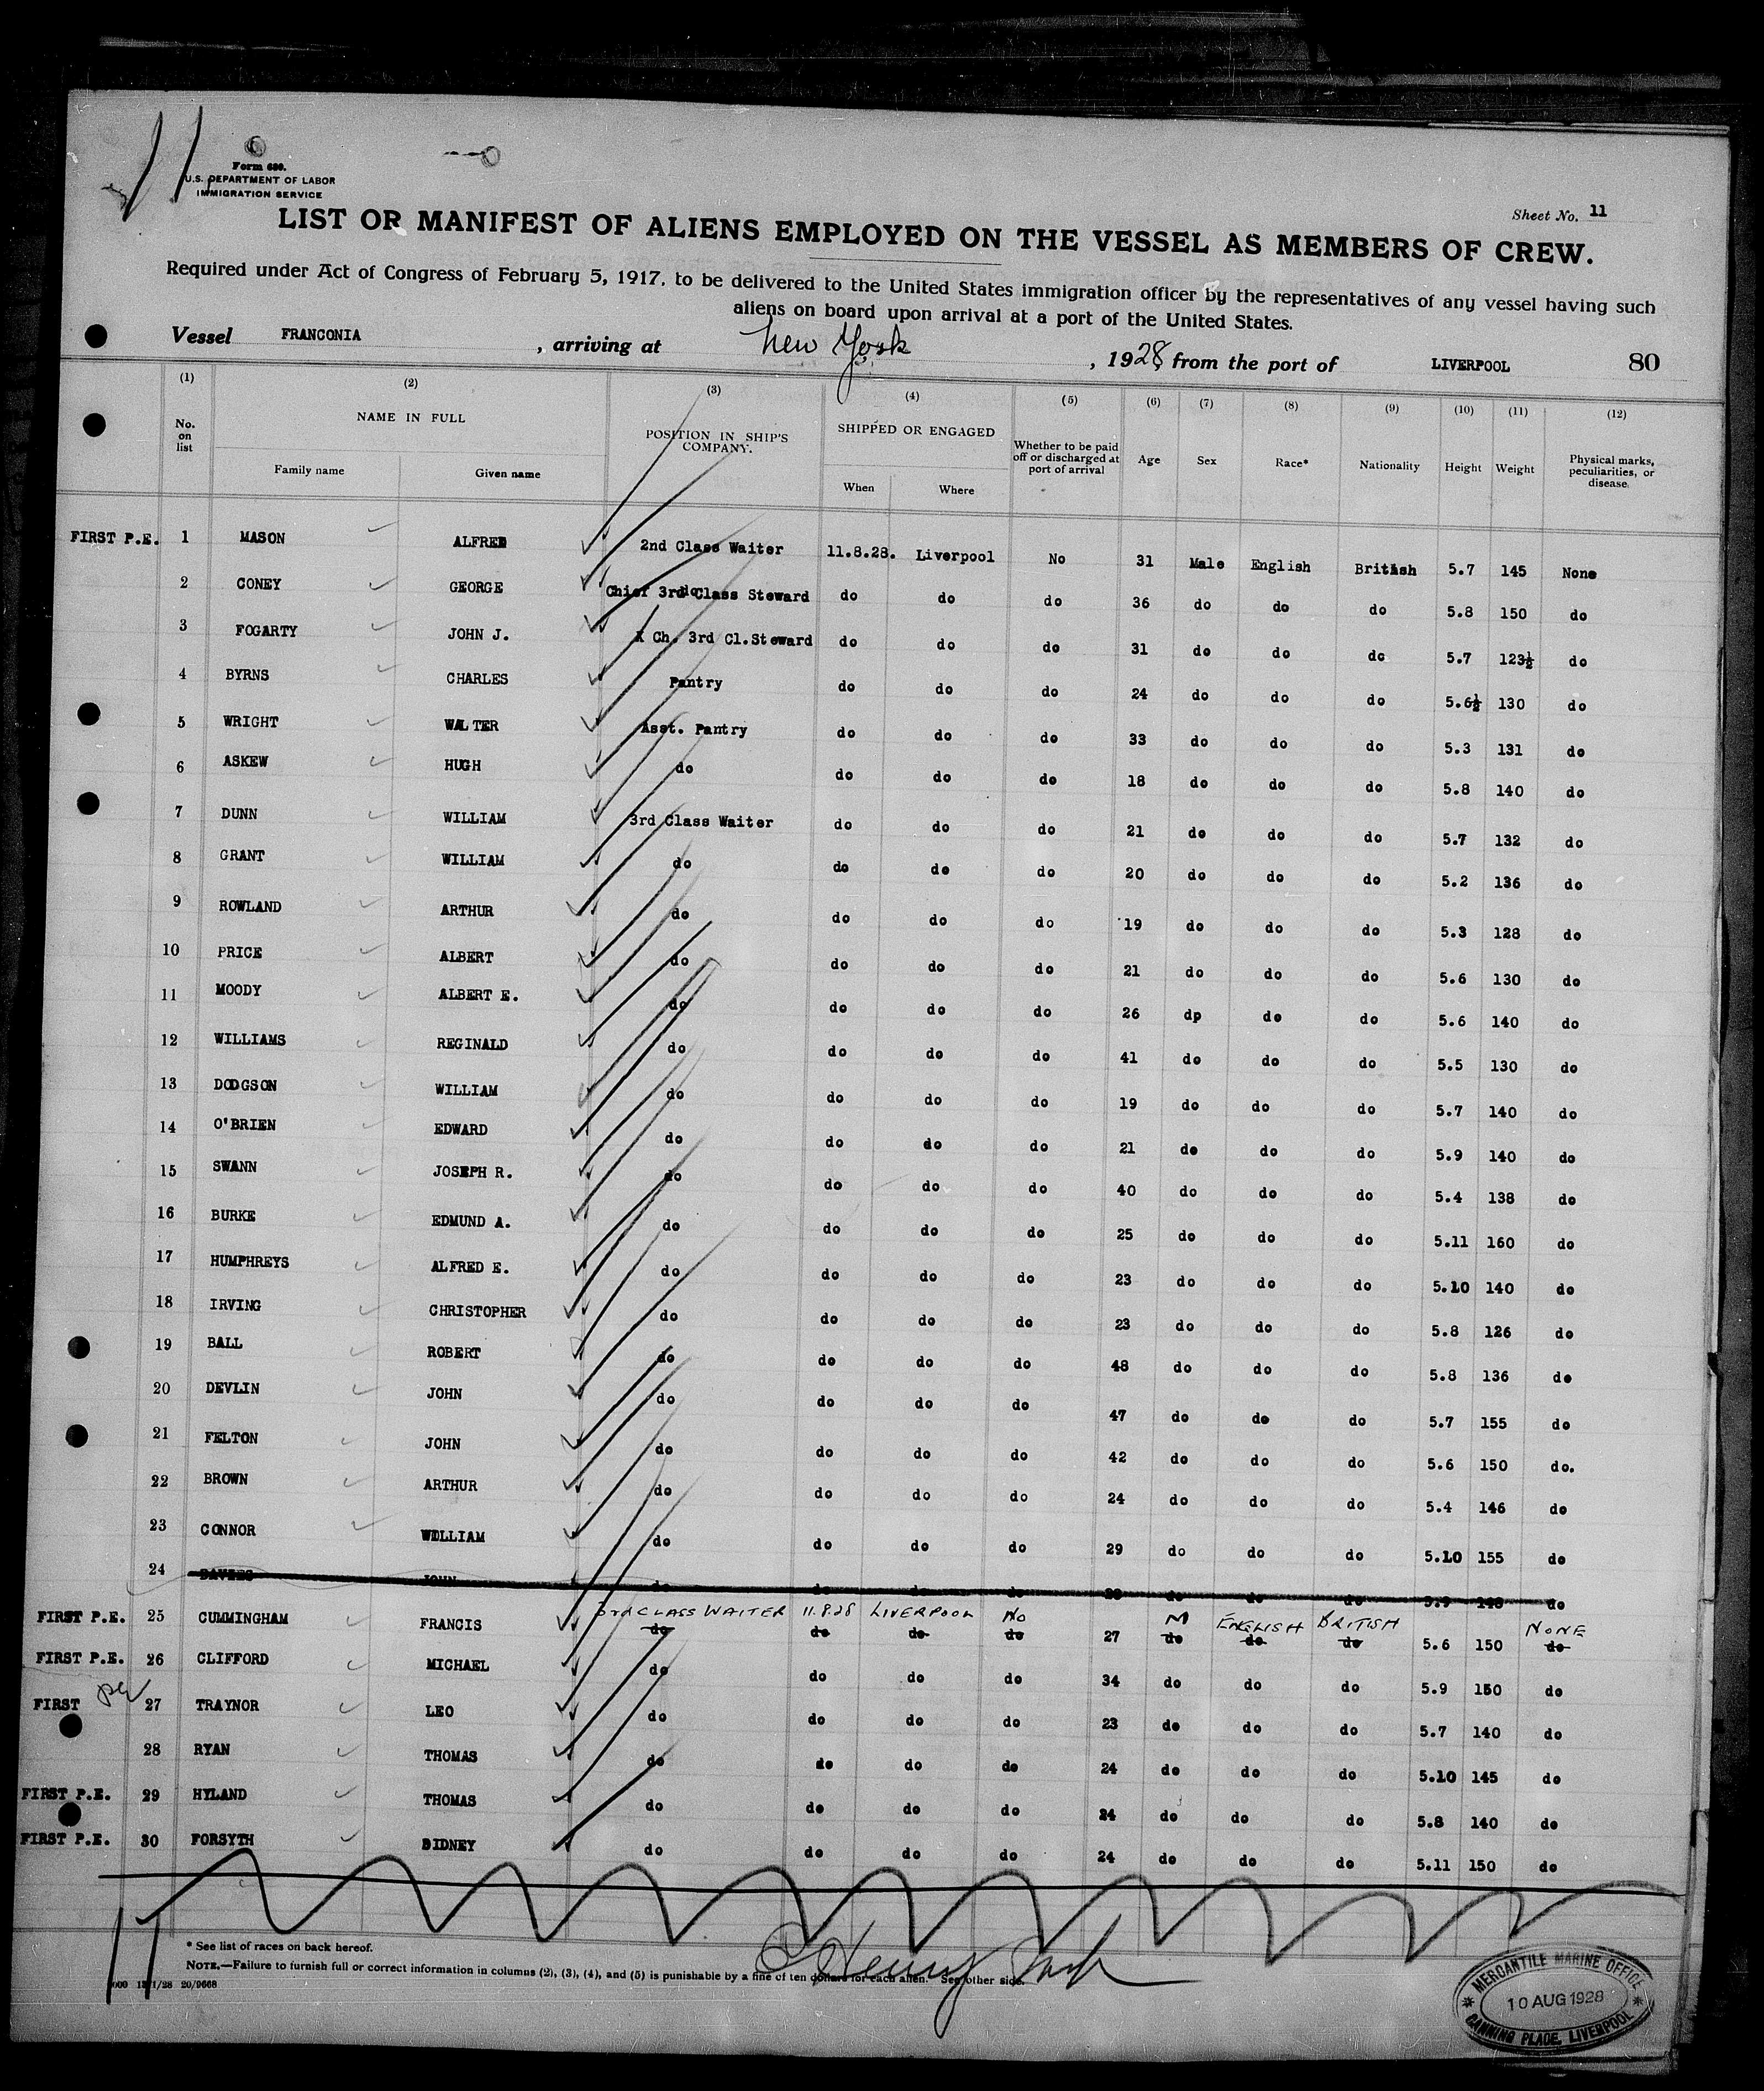 11
Form 680.
U.S. DEPARTMENT OF LABOR
IMMIGRATION SERVICE
Sheet No. 11
LIST OR MANIFEST OF ALIENS EMPLOYED ON THE VESSEL AS MEMBERS OF CREW.
Required under Act of Congress of February 5, 1917, to be delivered to the United States immigration officer by the representatives of any vessel having such
aliens on board upon arrival at a port of the United States.
Vessel FRANCONIA , arriving at New York , 1928 from the port of LIVERPOOL 80
(1) (2) (3) (4) (5) (6) (7) (8) (9) (10) (11) (12)
No. on list NAME IN FULL POSITION IN SHIP'S COMPANY. SHIPPED OR ENGAGED Whether to be paid off or discharged at port of arrival Age Sex Race* Nationality Height Weight Physical marks, peculiarities, or disease.
Family name Given name When Where
FIRST P.E. 1 MASON ALFRED 2nd Class Waiter 11.8.28. Liverpool No 31 Male English British 5.7 145 None
2 CONEY GEORGE Chief 3rd Class Steward do do do 36 do do do 5.8 150 do
3 FOGARTY JOHN J. X Ch. 3rd Cl.Steward do do do 31 do do do 5.7 123½ do
4 BYRNS CHARLES Pantry do do do 24 do do do 5.6½ 130 do
5 WRIGHT WALTER Asst. Pantry do do do 33 do do do 5.3 131 do
6 ASKEW HUGH do do do do 18 do do do 5.8 140 do
7 DUNN WILLIAM 3rd Class Waiter do do do 21 do do do 5.7 132 do
8 GRANT WILLIAM do do do do 20 do do do 5.2 136 do
9 ROWLAND ARTHUR do do do do 19 do do do 5.3 128 do
10 PRICE ALBERT do do do do 21 do do do 5.6 130 do
11 MOODY ALBERT E. do do do do 26 dp do do 5.6 140 do
12 WILLIAMS REGINALD do do do do 41 do do do 5.5 130 do
13 DODGSON WILLIAM do do do do 19 do do do 5.7 140 do
14 O'BRIEN EDWARD do do do do 21 do do do 5.9 140 do
15 SWANN JOSEPH R. do do do do 40 do do do 5.4 138 do
16 BURKE EDMUND A. do do do do 25 do do do 5.11 160 do
17 HUMPHREYS ALFRED E. do do do do 23 do do do 5.10 140 do
18 IRVING CHRISTOPHER do do do do 23 do do do 5.8 126 do
19 BALL ROBERT do do do do 48 do do do 5.8 136 do
20 DEVLIN JOHN do do do do 47 do do do 5.7 155 do
21 FELTON JOHN do do do do 42 do do do 5.6 150 do.
22 BROWN ARTHUR do do do do 24 do do do 5.4 146 do
23 CONNOR WILLIAM do do do do 29 do do do 5.10 155 do
24 DAVIES JOHN do do do do 28 do do do 5.9 140 do
3rd CLASS WAITER 11.8.28 LIVERPOOL No M ENGLISH BRITISH NONE
FIRST P.E. 25 CUMMINGHAM FRANCIS do do do do 27 do do do 5.6 150 do
FIRST P.E. 26 CLIFFORD MICHAEL do do do do 34 do do do 5.9 150 do
FIRST pe 27 TRAYNOR LEO do do do do 23 do do do 5.7 140 do
28 RYAN THOMAS do do do do 24 do do do 5.10 145 do
FIRST P.E. 29 HYLAND THOMAS do do do do 24 do do do 5.8 140 do
FIRST P.E. 30 FORSYTH SIDNEY do do do do 24 do do do 5.11 150 do
* See list of races on back hereof.
NOTE.—Failure to furnish full or correct information in columns (2), (3), (4), and (5) is punishable by a fine of ten dollars for each alien. See other side.
20/9668
MERCANTILE MARINE OFFICE
10 AUG 1928
CANNING PLACE, LIVERPOOL